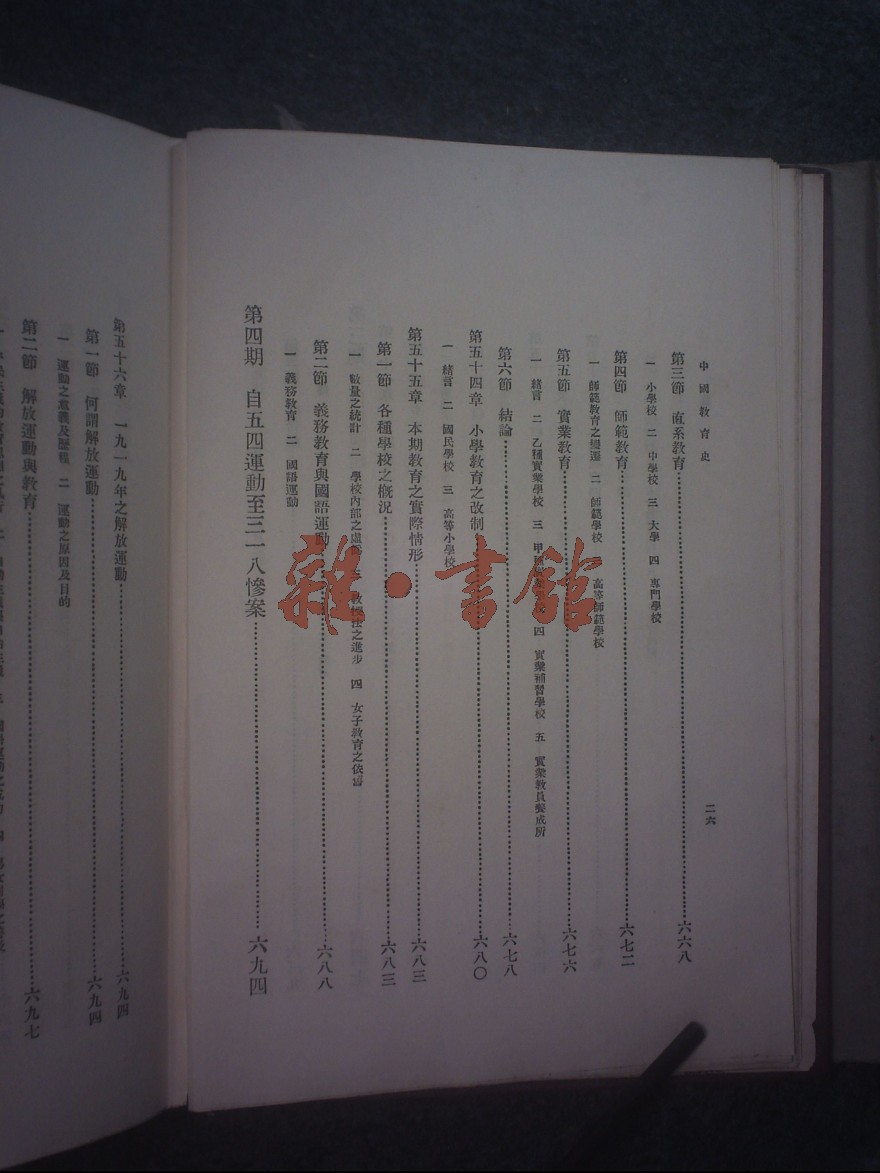 中國教育史
二六
第三節 直系教育……六六八
一 小學校 二 中學校 三 大學 四 專門學校
第四節 師範教育……六七二
一 師範教育之變遷 二 師範學校 三 高等師範學校
第五節 實業教育……六七六
一 緒言 二 乙種實業學校 三 甲種實業學校 四 實業補習學校 五 實業教員養成所
第六節 結論……六七八
第五十四章 小學教育之改制……六八〇
一 緒言 二 國民學校 三 高等小學校
第五十五章 本期教育之實際情形……六八三
第一節 各種學校之概況……六八三
一 數量之統計 二 學校內部之虛 三 教授法之進步 四 女子教育之依舊
第二節 義務教育與國語運動……六八八
一 義務教育 二 國語運動
第四期 自五四運動至三一八慘案……六九四
第五十六章 一九一九年之解放運動……六九四
第一節 何謂解放運動……六九四
一 運動之意義及歷程 二 運動之原因及目的
第二節 解放運動與教育……六九七
雜·書館